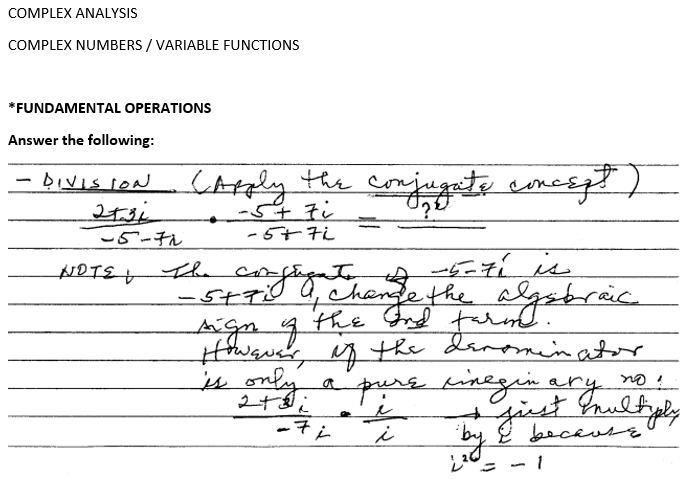 COMPLEX ANALYSIS
COMPLEX NUMBERS / VARIABLE FUNCTIONS
*FUNDAMENTAL OPERATIONS
Answer the following:
- DIVISION (Apply the conjugate concept)
2+3i / -5-7i · -5+7i / -5+7i = ?
NOTE: The conjugate of -5-7i is
-5+7i, change the algebraic
sign of the 2nd term.
However, if the denominator
is only a pure imaginary no:
2+3i / -7i · i / i → just multiply
by i because
i² = -1